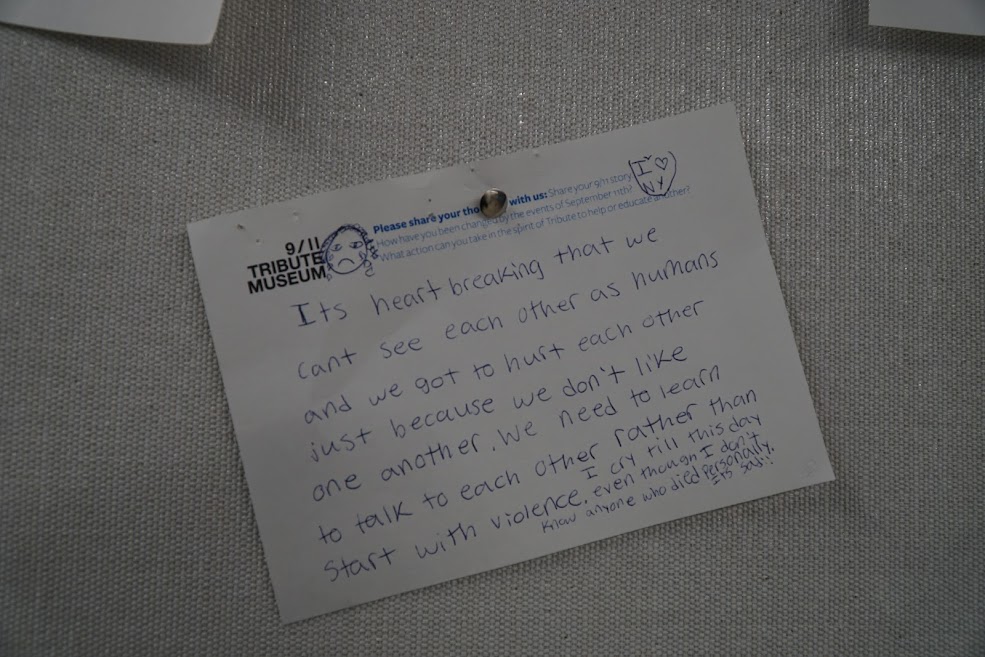 9/11
TRIBUTE
MUSEUM
Please share your tho with us: Share your 9/11 story
How have you been changed by the events of September 11th?
What action can you take in the spirit of Tribute to help or educate another?
I ♡
NY
Its heartbreaking that we
cant see each other as humans
and we got to hurt each other
just because we don't like
one another. We need to learn
to talk to each other rather than
start with violence. I cry till this day
even though I don't
know anyone who died personally.
Its sad!!